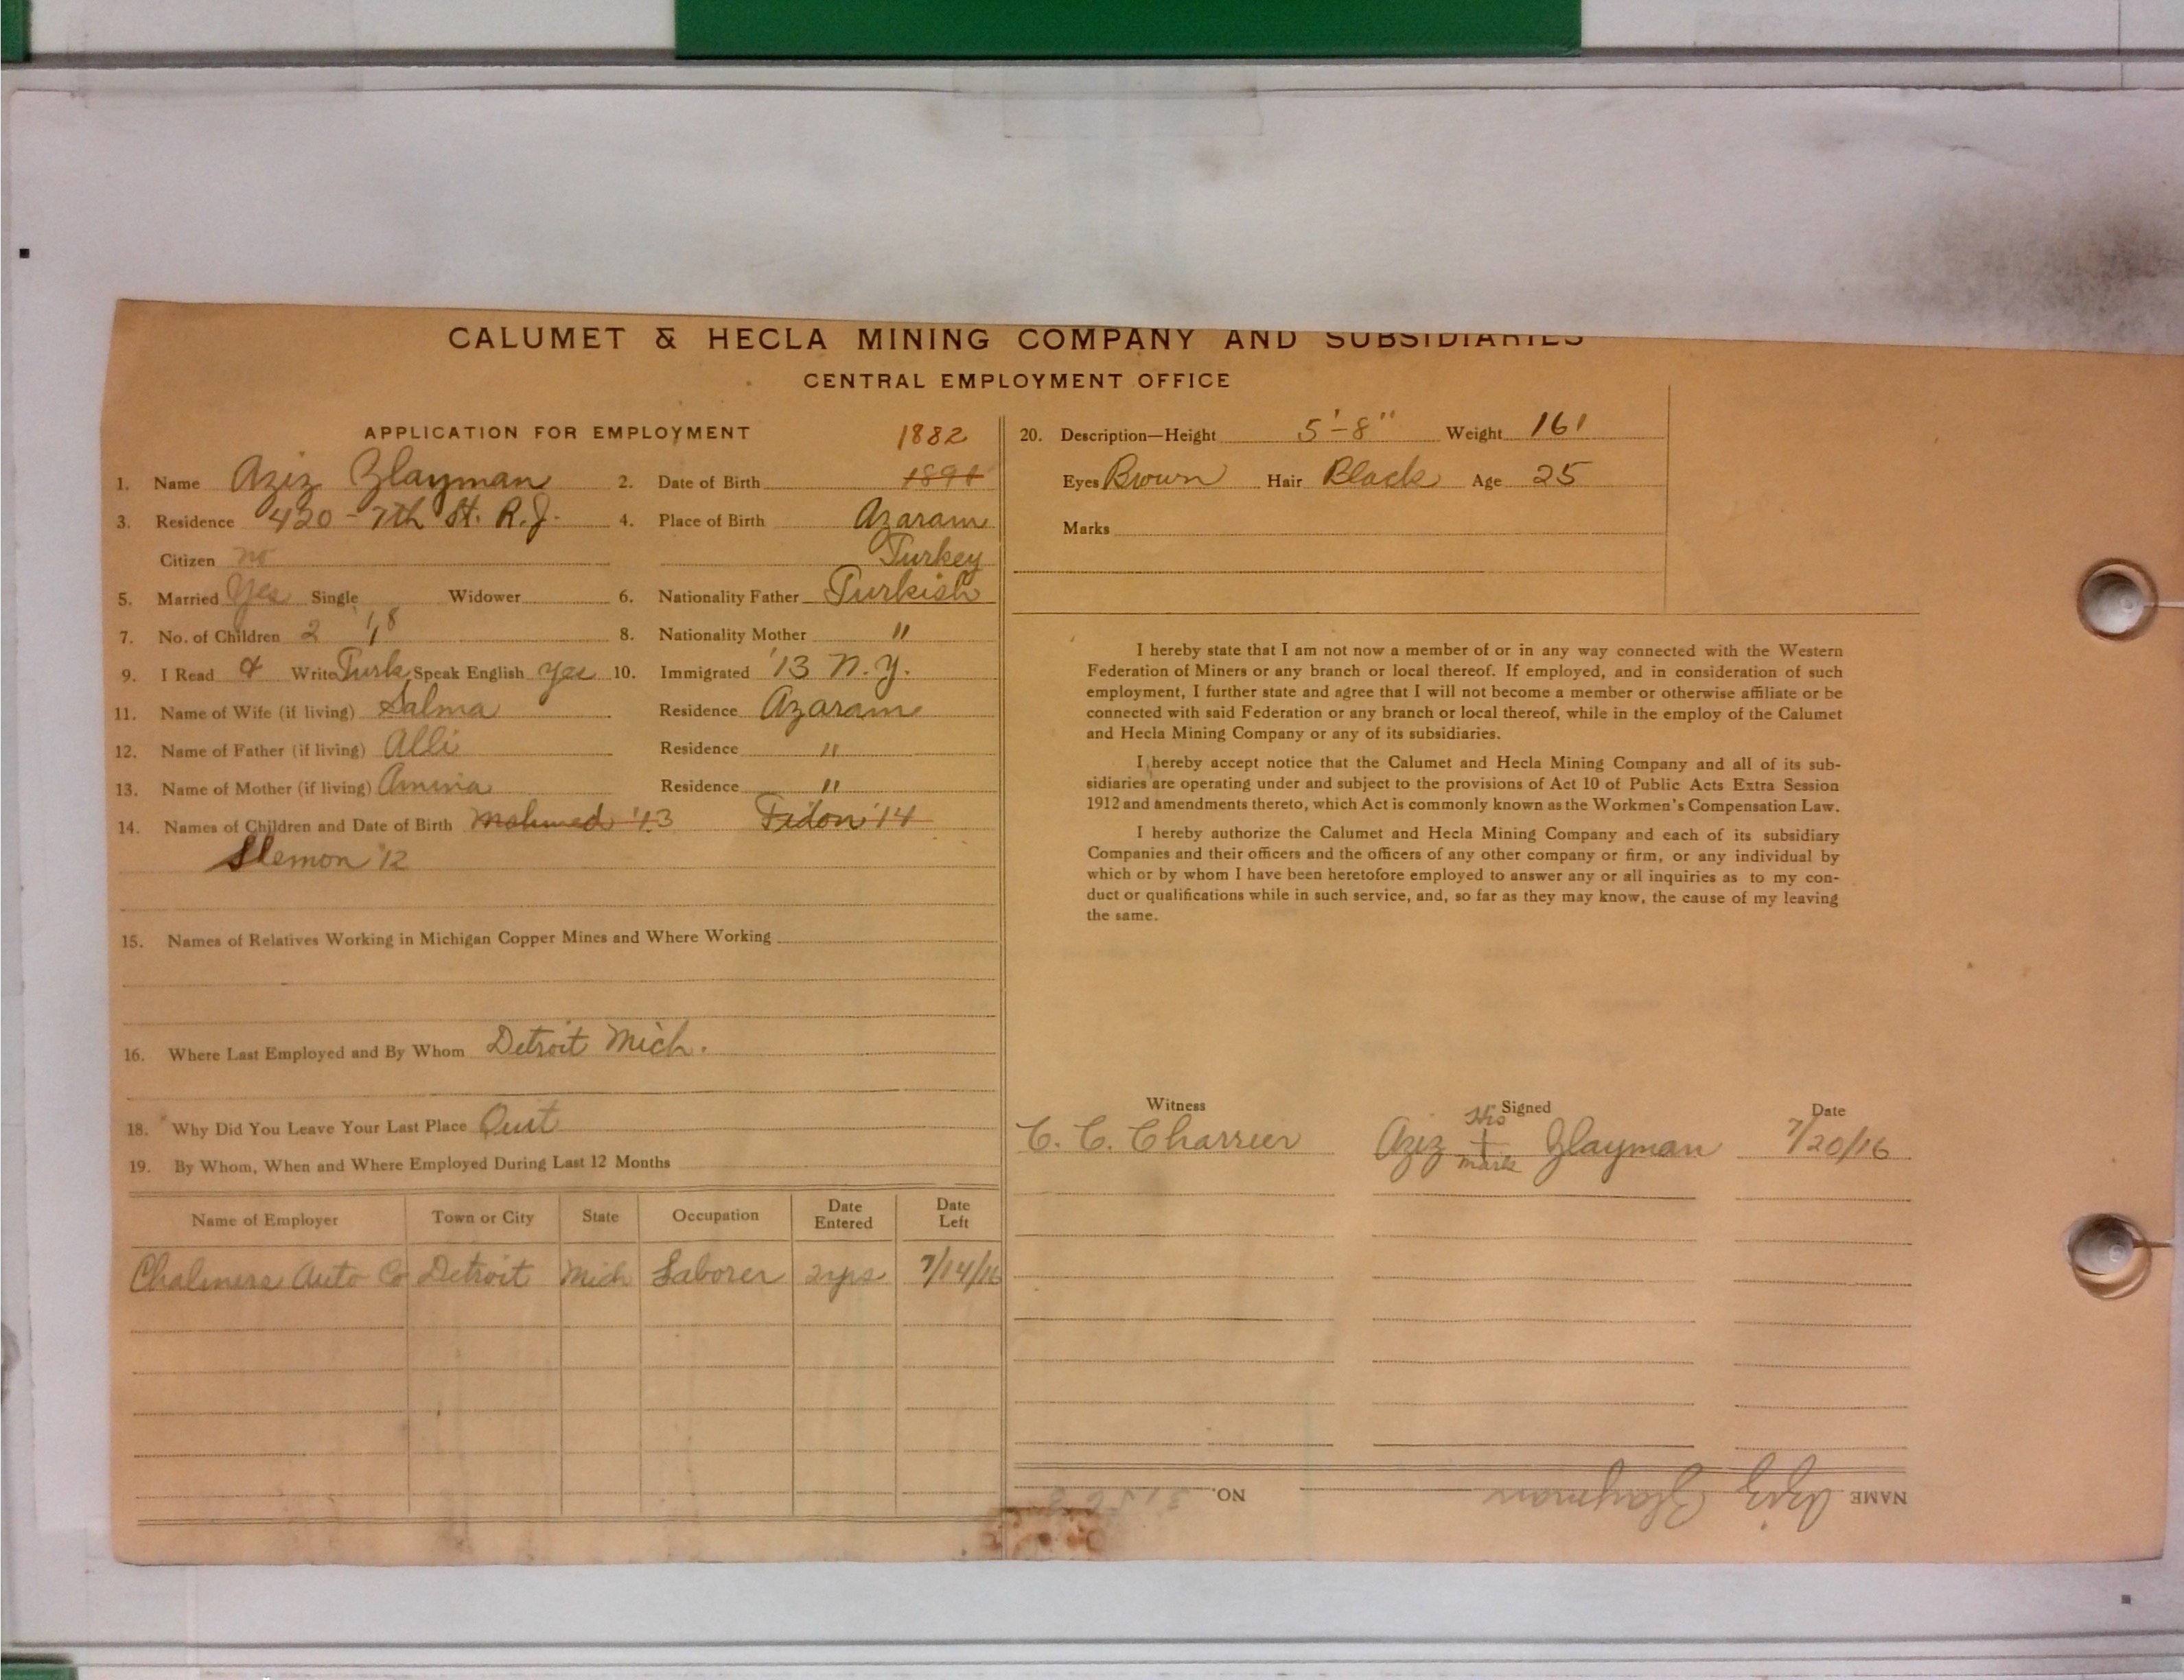 CALUMET & HECLA MINING COMPANY AND SUBSIDIARIES
CENTRAL EMPLOYMENT OFFICE
APPLICATION FOR EMPLOYMENT 1882
1. Name Aziz Zlayman 2. Date of Birth 1891
3. Residence 420 - 7th St. R.J. 4. Place of Birth Azaram
Citizen no Turkey
5. Married Yes Single Widower 6. Nationality Father Turkish
7. No. of Children 2 8. Nationality Mother "
9. I Read & Write Turk Speak English yes 10. Immigrated '13 N.Y.
11. Name of Wife (if living) Salma Residence Azaram
12. Name of Father (if living) Alli Residence "
13. Name of Mother (if living) Amina Residence "
14. Names of Children and Date of Birth Mohmed '13 Fidon '14
Slemon '12
15. Names of Relatives Working in Michigan Copper Mines and Where Working
16. Where Last Employed and By Whom Detroit Mich.
18. Why Did You Leave Your Last Place Quit
19. By Whom, When and Where Employed During Last 12 Months
Name of Employer Town or City State Occupation Date Entered Date Left
Chalmers Auto Co Detroit Mich Laborer 2 yrs 7/14/16
20. Description—Height 5'-8" Weight 161
Eyes Brown Hair Black Age 25
Marks
I hereby state that I am not now a member of or in any way connected with the Western
Federation of Miners or any branch or local thereof. If employed, and in consideration of such
employment, I further state and agree that I will not become a member or otherwise affiliate or be
connected with said Federation or any branch or local thereof, while in the employ of the Calumet
and Hecla Mining Company or any of its subsidiaries.
I hereby accept notice that the Calumet and Hecla Mining Company and all of its sub-
sidiaries are operating under and subject to the provisions of Act 10 of Public Acts Extra Session
1912 and amendments thereto, which Act is commonly known as the Workmen's Compensation Law.
I hereby authorize the Calumet and Hecla Mining Company and each of its subsidiary
Companies and their officers and the officers of any other company or firm, or any individual by
which or by whom I have been heretofore employed to answer any or all inquiries as to my con-
duct or qualifications while in such service, and, so far as they may know, the cause of my leaving
the same.
Witness Signed Date
C. C. Charrier Aziz His + mark Zlayman 7/20/16
NAME Aziz Zlayman NO.